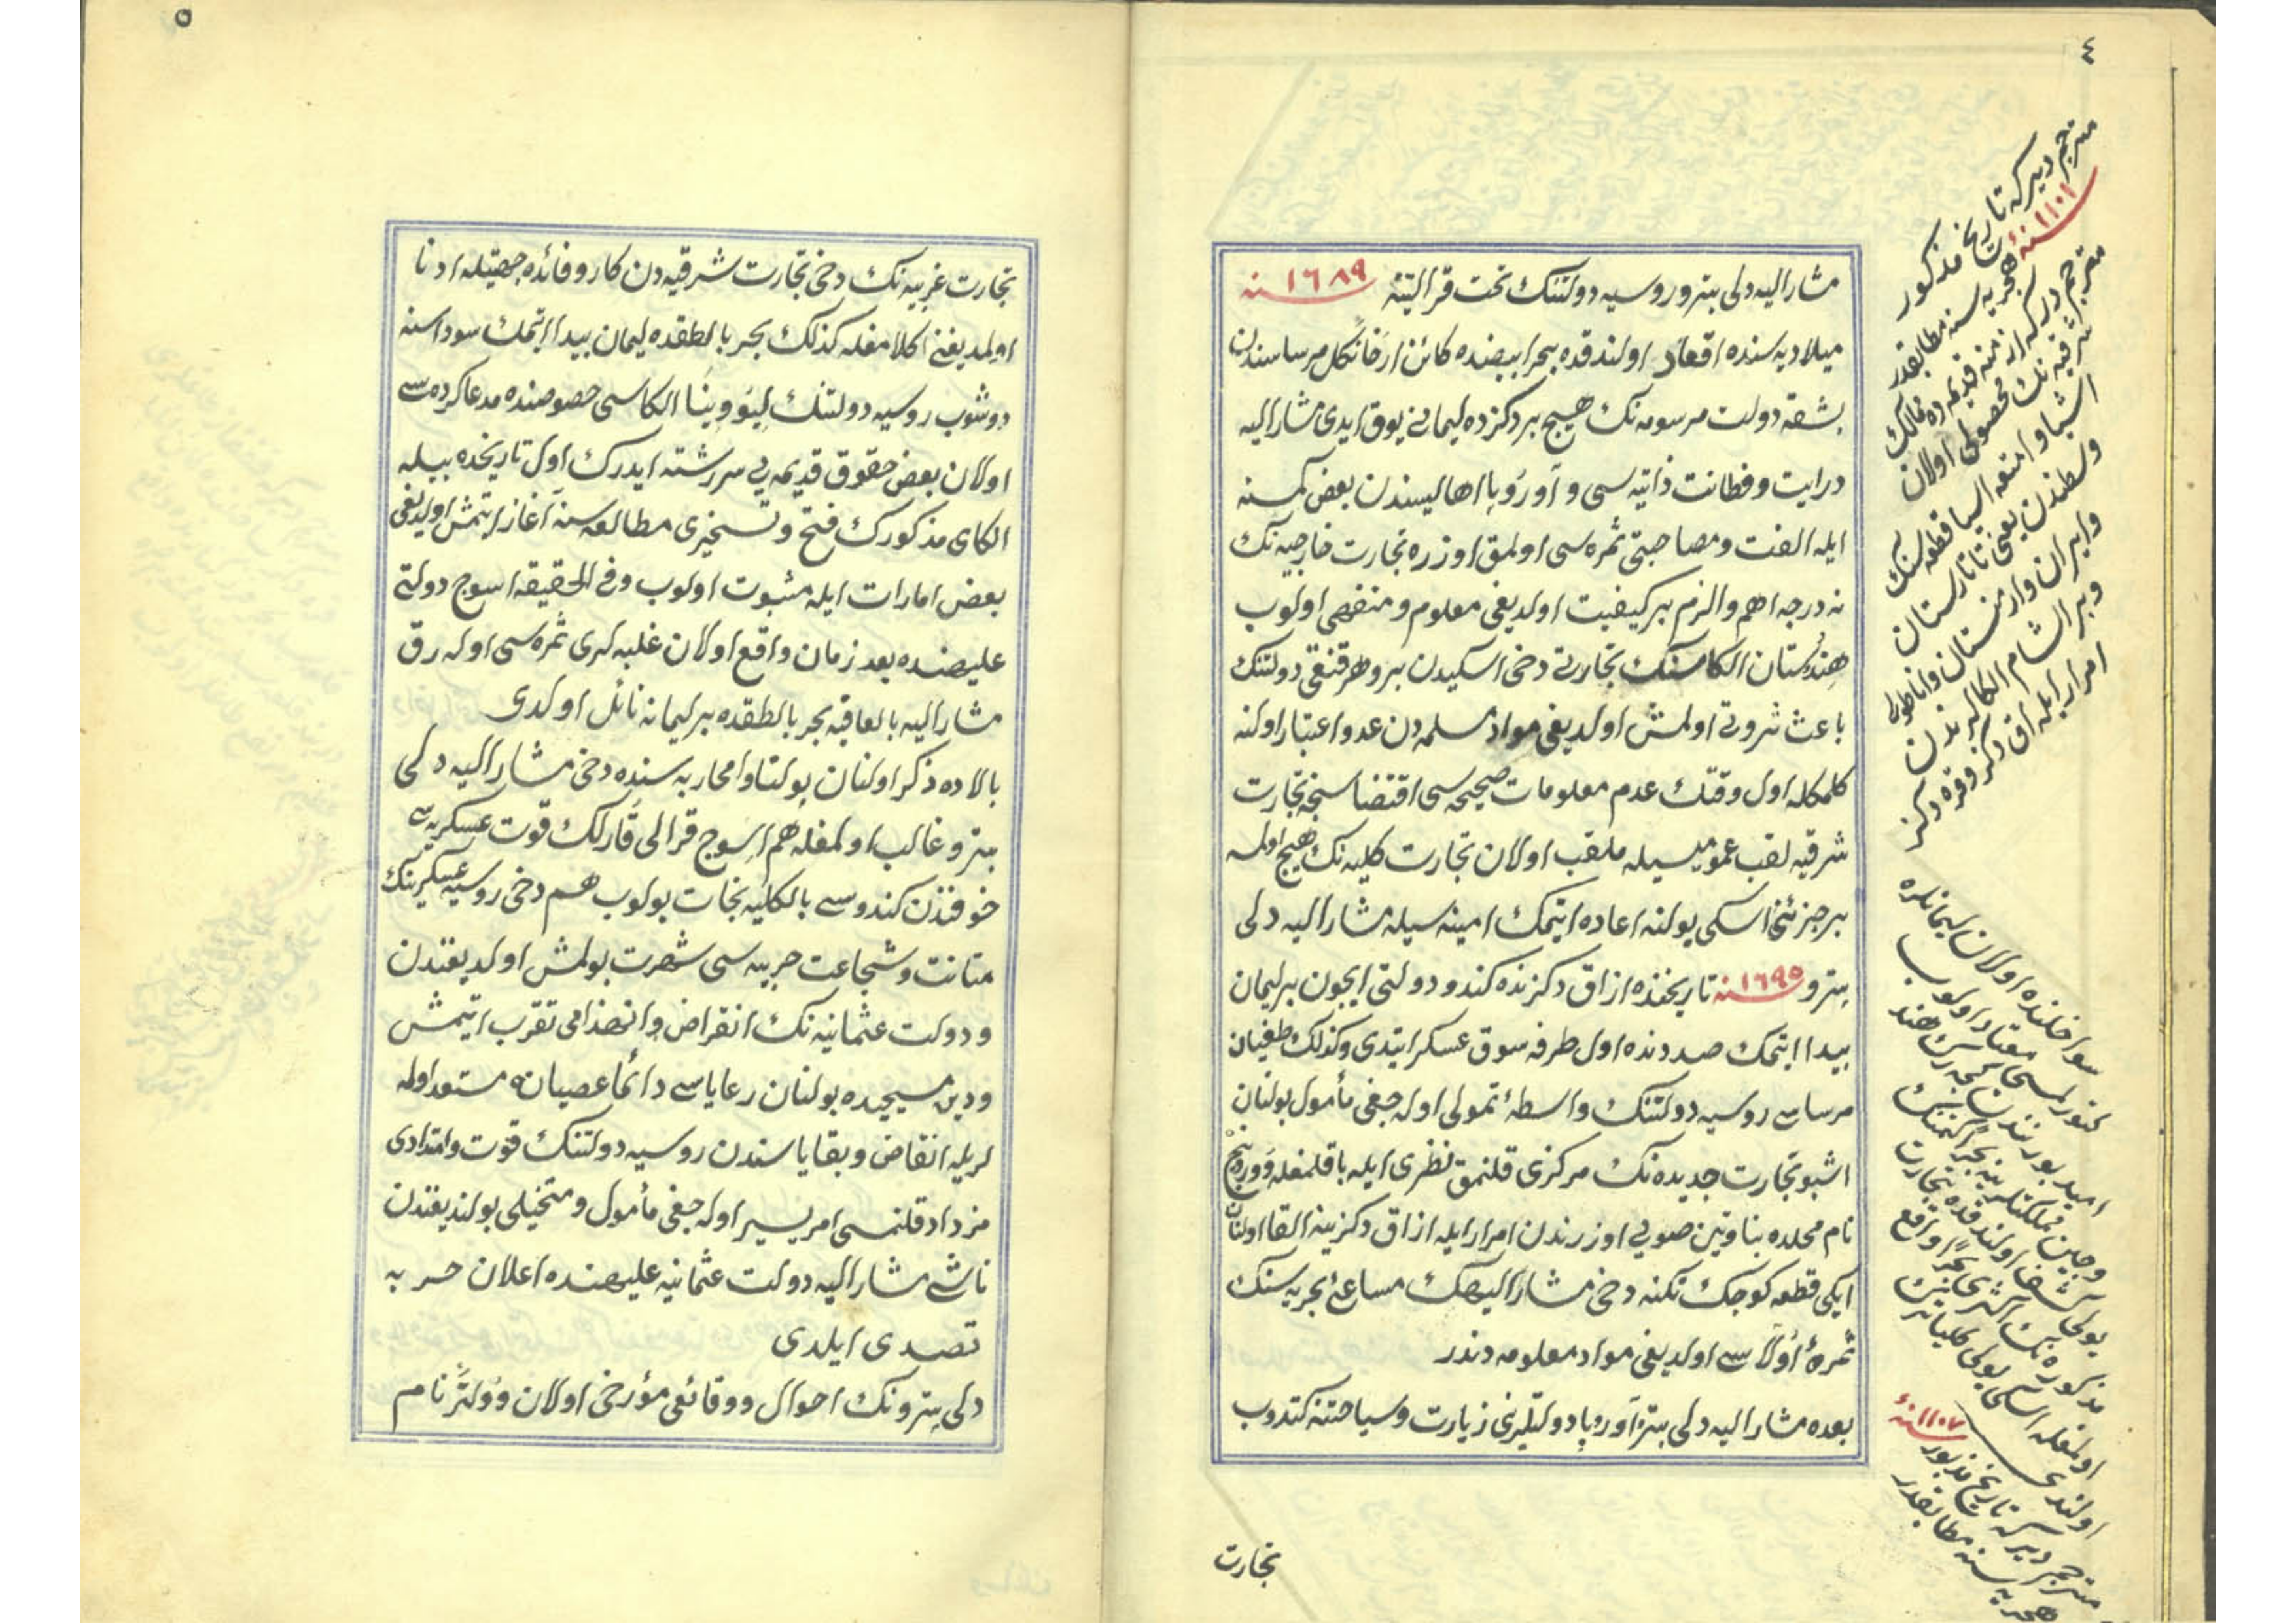 ٤
مشار اليه دلى پترو روسيه دولتنك تخت قراليتنه سنه ١٦٨٩
ميلاديه سنده اقعاد اولندقده بحر ابيضده كائن ارقانكل مرساسندن
بشقه دولت مرسومه نك هيچ بر دكزده ليمانى يوق ايدى مشار اليه
درايت وفطانت ذاتيه سى و آوروپا اهاليسندن بعض كمسنه
ايله الفت ومصاحبتى ثمره سى اولمق اوزره تجارت خارجيه نك
نه درجه اهم والزم بر كيفيت اولديغى معلوم و منفهمى اولوب
هندستان الكاسنك تجارتى دخى اسكيدن برو هر قنغى دولتنك
باعث ثروتى اولمش اولديغى مواد مسلمه دن عد واعتبار اولنه
كلمكله اول وقتك عدم معلومات صحيحه سى اقتضاسنجه تجارت
شرقيه لقب عموميسيله ملقب اولان تجارت كليه نك هيچ اولمه
بر جزئنى اسكى يولنه اعاده ايتمك امنيه سيله مشار اليه دلى
پترو سنه ١٦٩٥ تاريخنده ازاق دكزنده كندو دولتى ايچون بر ليمان
پيدا ايتمك صددنده اول طرفه سوق عسكر ايتدى وكذلك طغيان
مرساسى روسيه دولتنك واسطهٔ تمولى اوله جغى مأمول بولنان
اشبو تجارت جديده نك مركزى قلنمق نظرى ايله باقلمغله
نام محلده بنا وتين صويى اوزرندن امرار ايله ازاق دكزينه القا اولنان
ايكى قطعه كوچك تكنه دخى مشار اليهك مساعئ بحريه سنك
ثمرهٔ اولاسى اولديغى مواد معلومه دندر
بعده مشار اليه دلى پترو آوروپا دولتلرينى زيارت وسياحتنه كتدوب
تجارت
مترجم ديركه تاريخ مذكور
سنه ١١٠١
هجريه سنه مطابقدر
مترجم دركه ازمنهٔ قديمه ده ممالك
شرقيه نك محصولى اولان
اشيا و امتعه اسيا قطعه سنك
وسطندن يعنى تاتارستان
وايران وارمنستان واناطولى
وبر الشام الكالرندن
امرار ايله اق دكز وقره دكز
سواحلنده اولان ليمانلره
كتورلمسى معتاد اولوب
اميد بورنندن كچه رك هند
وچين مملكتلرينه بحراً كتمنك
يولى كشف اولندقده تجارت
مذكوره نك اكثرى بحراً واقع
اولمغله اسكى يولى كلياً ترك
اولندى
سنه ١١٠٧
مترجم ديركه تاريخ مزبور
هجريه سنه مطابقدر
٥
تجارت غربيه نك دخى تجارت شرقيه دن كار وفائده جهتيله ادنا
اولمديغنى اكلامغله كذلك بحر بالطقده ليمان پيدا ايتمك سوداسنه
دوشوب روسيه دولتنك ليوونيا الكاسى خصوصنده مدعا كرده سى
اولان بعض حقوق قديمه يى سررشته ايدرك اول تاريخده بيله
الكاى مذكورك فتح وتسخيرى مطالعه سنه آغاز ايتمش اولديغى
بعض امارات ايله مثبوت اولوب وفى الحقيقه اسوج دولتى
عليهنده بعد زمان واقع اولان غلبه لرى ثمره سى اوله رق
مشار اليه بالعاقبه بحر بالطقده بر ليمانه نائل اولدى
بالاده ذكر اولنان پولتاوا محاربه سنده دخى مشار اليه دلى
پترو غالب اولمغله هم اسوج قرالى قارلك قوت عسكريه سى
خوفندن كندوسى بالكليه نجات بولوب هم دخى روسيه عسكرينك
متانت وشجاعت حربيه سى شهرت بولمش اولديغندن
و دولت عثمانيه نك انقراض وانهدامى تقرب ايتمش
ودين مسيحيده بولنان رعاياسى دائما عصيانه مستعد اوله
لريله انقاض وبقاياسندن روسيه دولتنك قوت وامتدادى
مزداد قلنمسى امر يسير اوله جغى مأمول ومتخيلى بولنديغندن
ناشى مشار اليه دولت عثمانيه عليهنده اعلان حربه
تصدى ايلدى
دلى پترونك احوال ووقائعى مؤرخى اولان وولتر نام